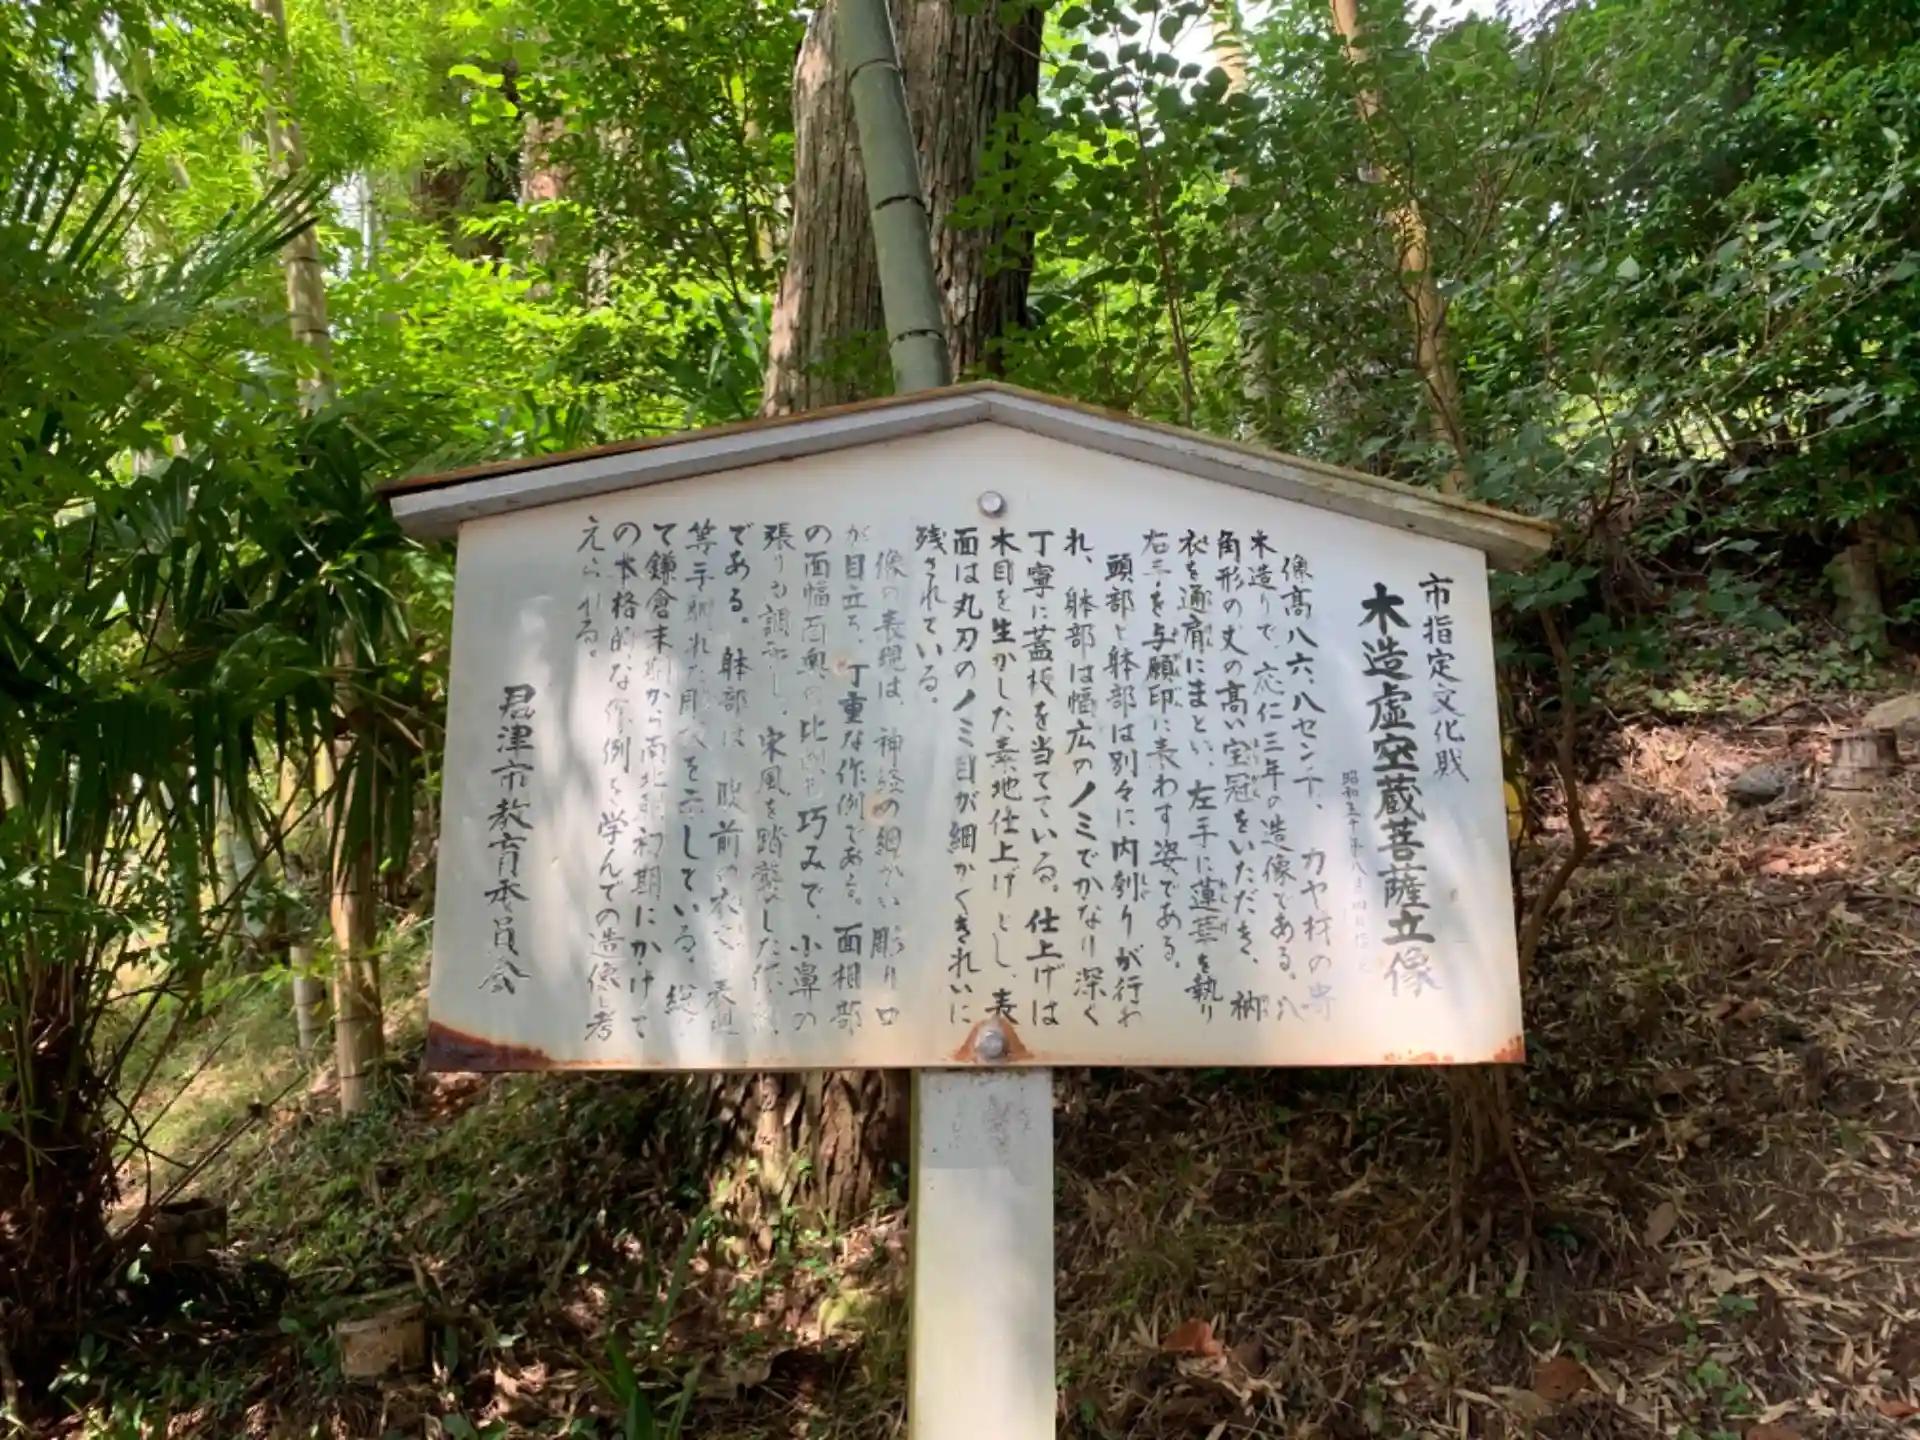 市指定文化財
木造虚空蔵菩薩立像
昭和五十年八月四日
像高八六、八センチ、カヤ材の寄
木造りで、応仁三年の造像である。八
角形の丈の高い宝冠をいただき、衲
衣を通肩にまとい、左手に蓮華を執り
右手を与願印に表わす姿である。
頭部と躰部は別々に内刳りが行わ
れ、躰部は幅広のノミでかなり深く
丁寧に蓋板を当てている。仕上げは
木目を生かした素地仕上げとし、表
面は丸刀のノミ目が細かくきれいに
残されている。
像の表現は、神経の細かい彫り口
が目立ち、丁重な作例である。面相部
の面幅面奥の比例も巧みで、小鼻の
張りも調和し、宋風を踏襲した作
である。躰部は、腹前の衣 表現
等手馴れた彫 を示している。総
て鎌倉末期から南北朝初期にかけて
の本格的な作例を学んでの造像と考
えられる。
君津市教育委員会